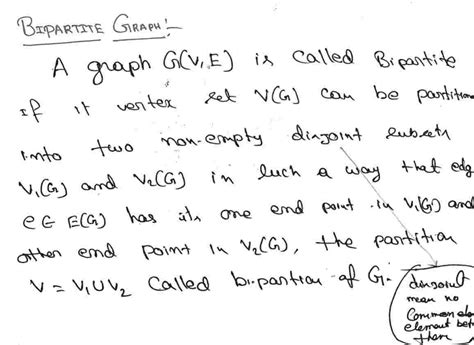 BIPARTITE GRAPH:-
A graph G(V,E) is called Bipartite
if it vertex set V(G) can be partition
into two non-empty disjoint subsets
V₁(G) and V₂(G) in such a way that edg
e ∈ E(G) has its one end point in V₁(G) and
other end point in V₂(G), the partition
V = V₁UV₂ Called bipartion of G.
disjoint
mean no
Common
element bet
them